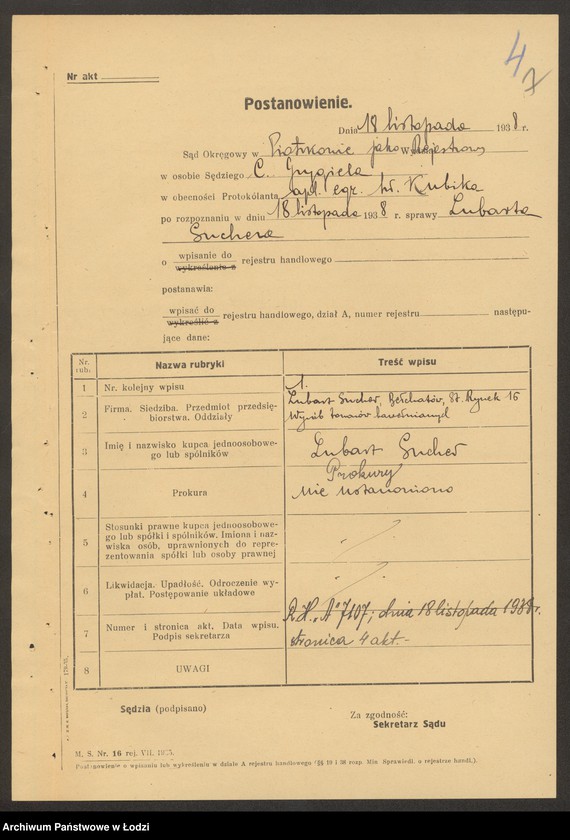 4
7
Nr akt
Postanowienie.
Dnia 18 listopada 1938 r.
Sąd Okręgowy w Piotrkowie jako Rejestrowy
w osobie Sędziego C. Grygiela
w obecności Protokólanta apl. egz. Wł. Kubika
po rozpoznaniu w dniu 18 listopada 1938 r. sprawy Lubarta
Suchera
o wpisanie do
wykreślenie z rejestru handlowego
postanawia:
wpisać do
wykreślić z rejestru handlowego, dział A, numer rejestru następu-
jące dane:
Nr. rub. Nazwa rubryki Treść wpisu
1 Nr. kolejny wpisu 1.
2 Firma. Siedziba. Przedmiot przedsię-
biorstwa. Oddziały
Lubart Sucher, Bełchatów, St. Rynek 16
Wyrób towarów bawełnianych
3 Imię i nazwisko kupca jednoosobowe-
go lub spólników
Lubart Sucher
4 Prokura
Prokury
nie ustanowiono
5 Stosunki prawne kupca jednoosobowe-
go lub spółki i spólników. Imiona i naz-
wiska osób, uprawnionych do repre-
zentowania spółki lub osoby prawnej
6 Likwidacja. Upadłość. Odroczenie wy-
płat. Postępowanie układowe
7 Numer i stronica akt. Data wpisu.
Podpis sekretarza
R.H. „A" 7107; dnia 18 listopada 1938 r.
stronica 4 akt.-
8 UWAGI
Sędzia (podpisano)
Za zgodność:
Sekretarz Sądu
M. S. Nr. 16 rej. VII.
Postanowienie o wpisaniu lub wykreśleniu w dziale A rejestru handlowego (§§ 19 i 38 rozp. Min. Sprawiedl. o rejestrze handl.).
Archiwum Państwowe w Łodzi